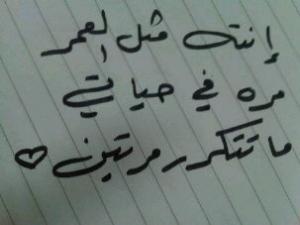 إنته مثل العمر
مره في حياتي
ما تتكرر مرتين ♡